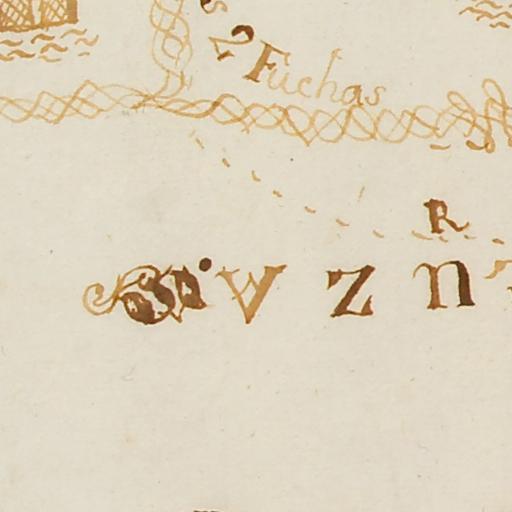 2 Fuchas
R
V Z N